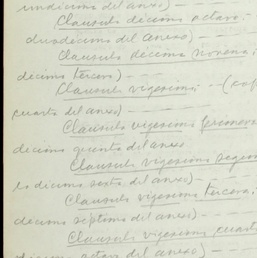 undécimo del anexo) - -
Clausula décimo octava:
duodécimo del anexo) - -
Clausula décima novena:
décimo tercero) - - -
Clausula vigesima: -
cuarto del anexo) - -
Clausula vigesimo primera:
décimo quinto del anexo
Clausula vigesimo segun
lo décimo sexto del anexo)
Clausula vigesimo tercera:
décimo séptimo del anexo) - -
Clausula vigesimo cuarta
décimo octavo del anexo) -